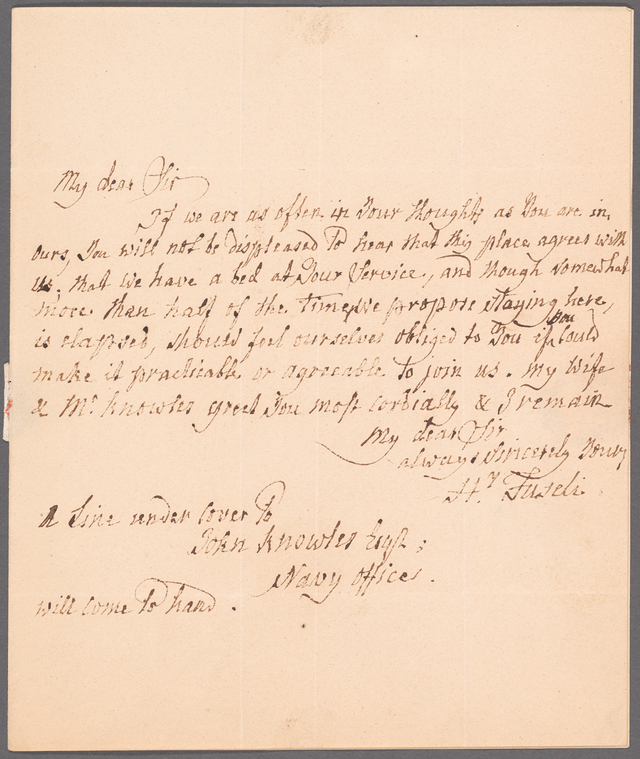 My dear Sir
If we are as often in Your thoughts as You are in
ours, You will not be displeased to hear that this place agrees with
us. that we have a bed at Your Service, and though somewhat
more than half of the time, we propose staying here,
is elapsed, should feel ourselves obliged to You if You Could
make it practicable or agreeable to join us. My Wife
& Mr. Knowles greet You most cordially & I remain
My dear Sir
always Sincerely Yours
Hy. Fuseli.
A Line under Cover to
John Knowles Esqr;
Navy Office.
will come to hand.